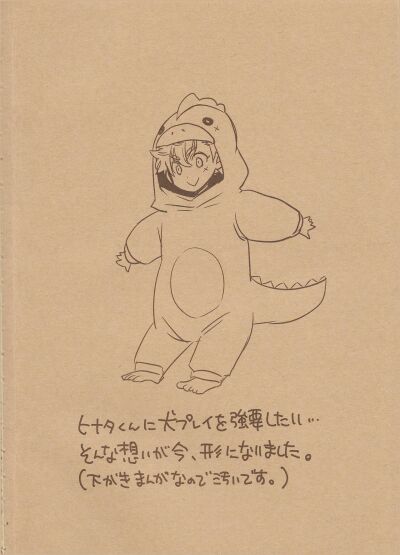 ヒナタくんに犬プレイを強要したい…
そんな想いが今、形になりました。
(下がきまんがなので汚いです。)